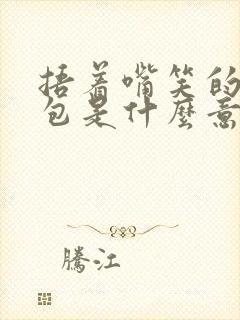 捂着嘴笑的
包是什麽意
騰江